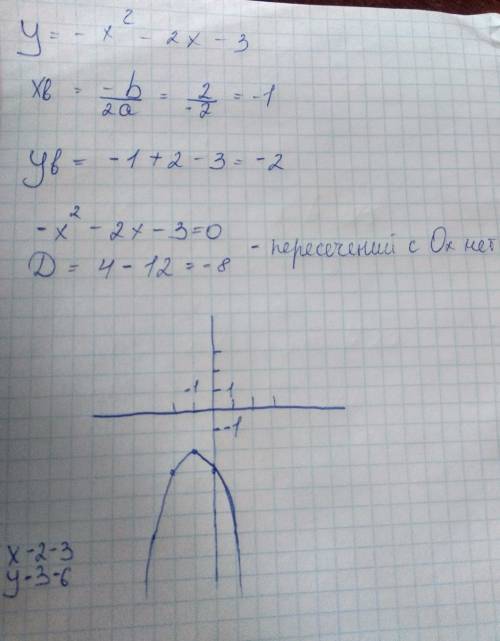 y = -x² - 2x - 3
xв = -b/2a = 2/-2 = -1
yв = -1 + 2 - 3 = -2
-x² - 2x - 3 = 0
D = 4 - 12 = -8 - пересечений с Ox нет
-1 1
-1
x -2 -3
y -3 -6